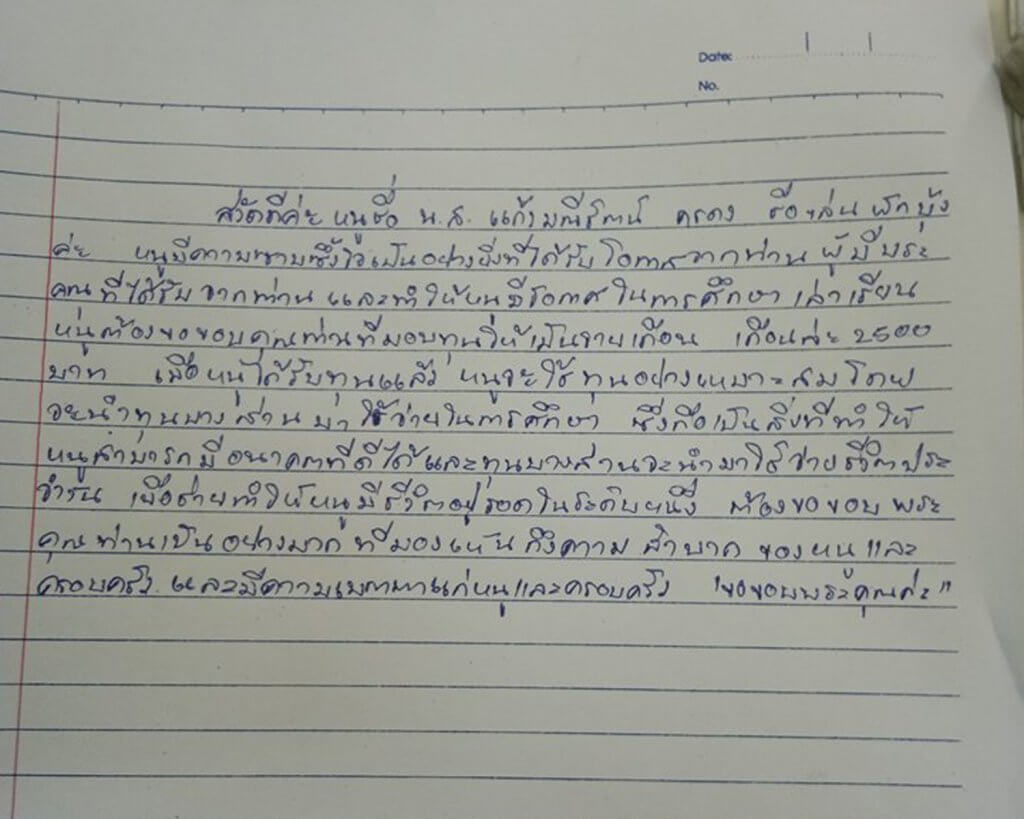 Date:
No.
สวัสดีค่ะ หนูชื่อ น.ส. แก้วมณีรัตน์ ชื่อเล่น ผักบุ้ง
ค่ะ หนูมีความซาบซึ้งใจเป็นอย่างยิ่งที่ได้รับโอกาสจากท่าน ผู้มีพระ
คุณ ที่ได้รับจากท่าน และทำให้หนูมีโอกาสในการศึกษา เล่าเรียน
หนูต้องขอขอบคุณท่านที่มอบทุนให้เป็นรายเดือน เดือนละ 2500
บาท เมื่อหนูได้รับทุนแล้ว หนูจะใช้ทุนอย่างเหมาะสม โดย
จะนำทุนบางส่วน มาใช้จ่ายในการศึกษา ซึ่งถือเป็นสิ่งที่ทำให้
หนูสามารถมีอนาคตที่ดีได้ และทุนบางส่วนจะนำมาใช้จ่ายชีวิตประ
จำวัน เพื่อช่วยทำให้หนูมีชีวิตอยู่รอดในระดับหนึ่ง ต้องขอขอบพระ
คุณท่านเป็นอย่างมาก ที่มองเห็นถึงความลำบาก ของหนูและ
ครอบครัว และมีความเมตตาแก่หนูและครอบครัว "ขอขอบพระคุณค่ะ"